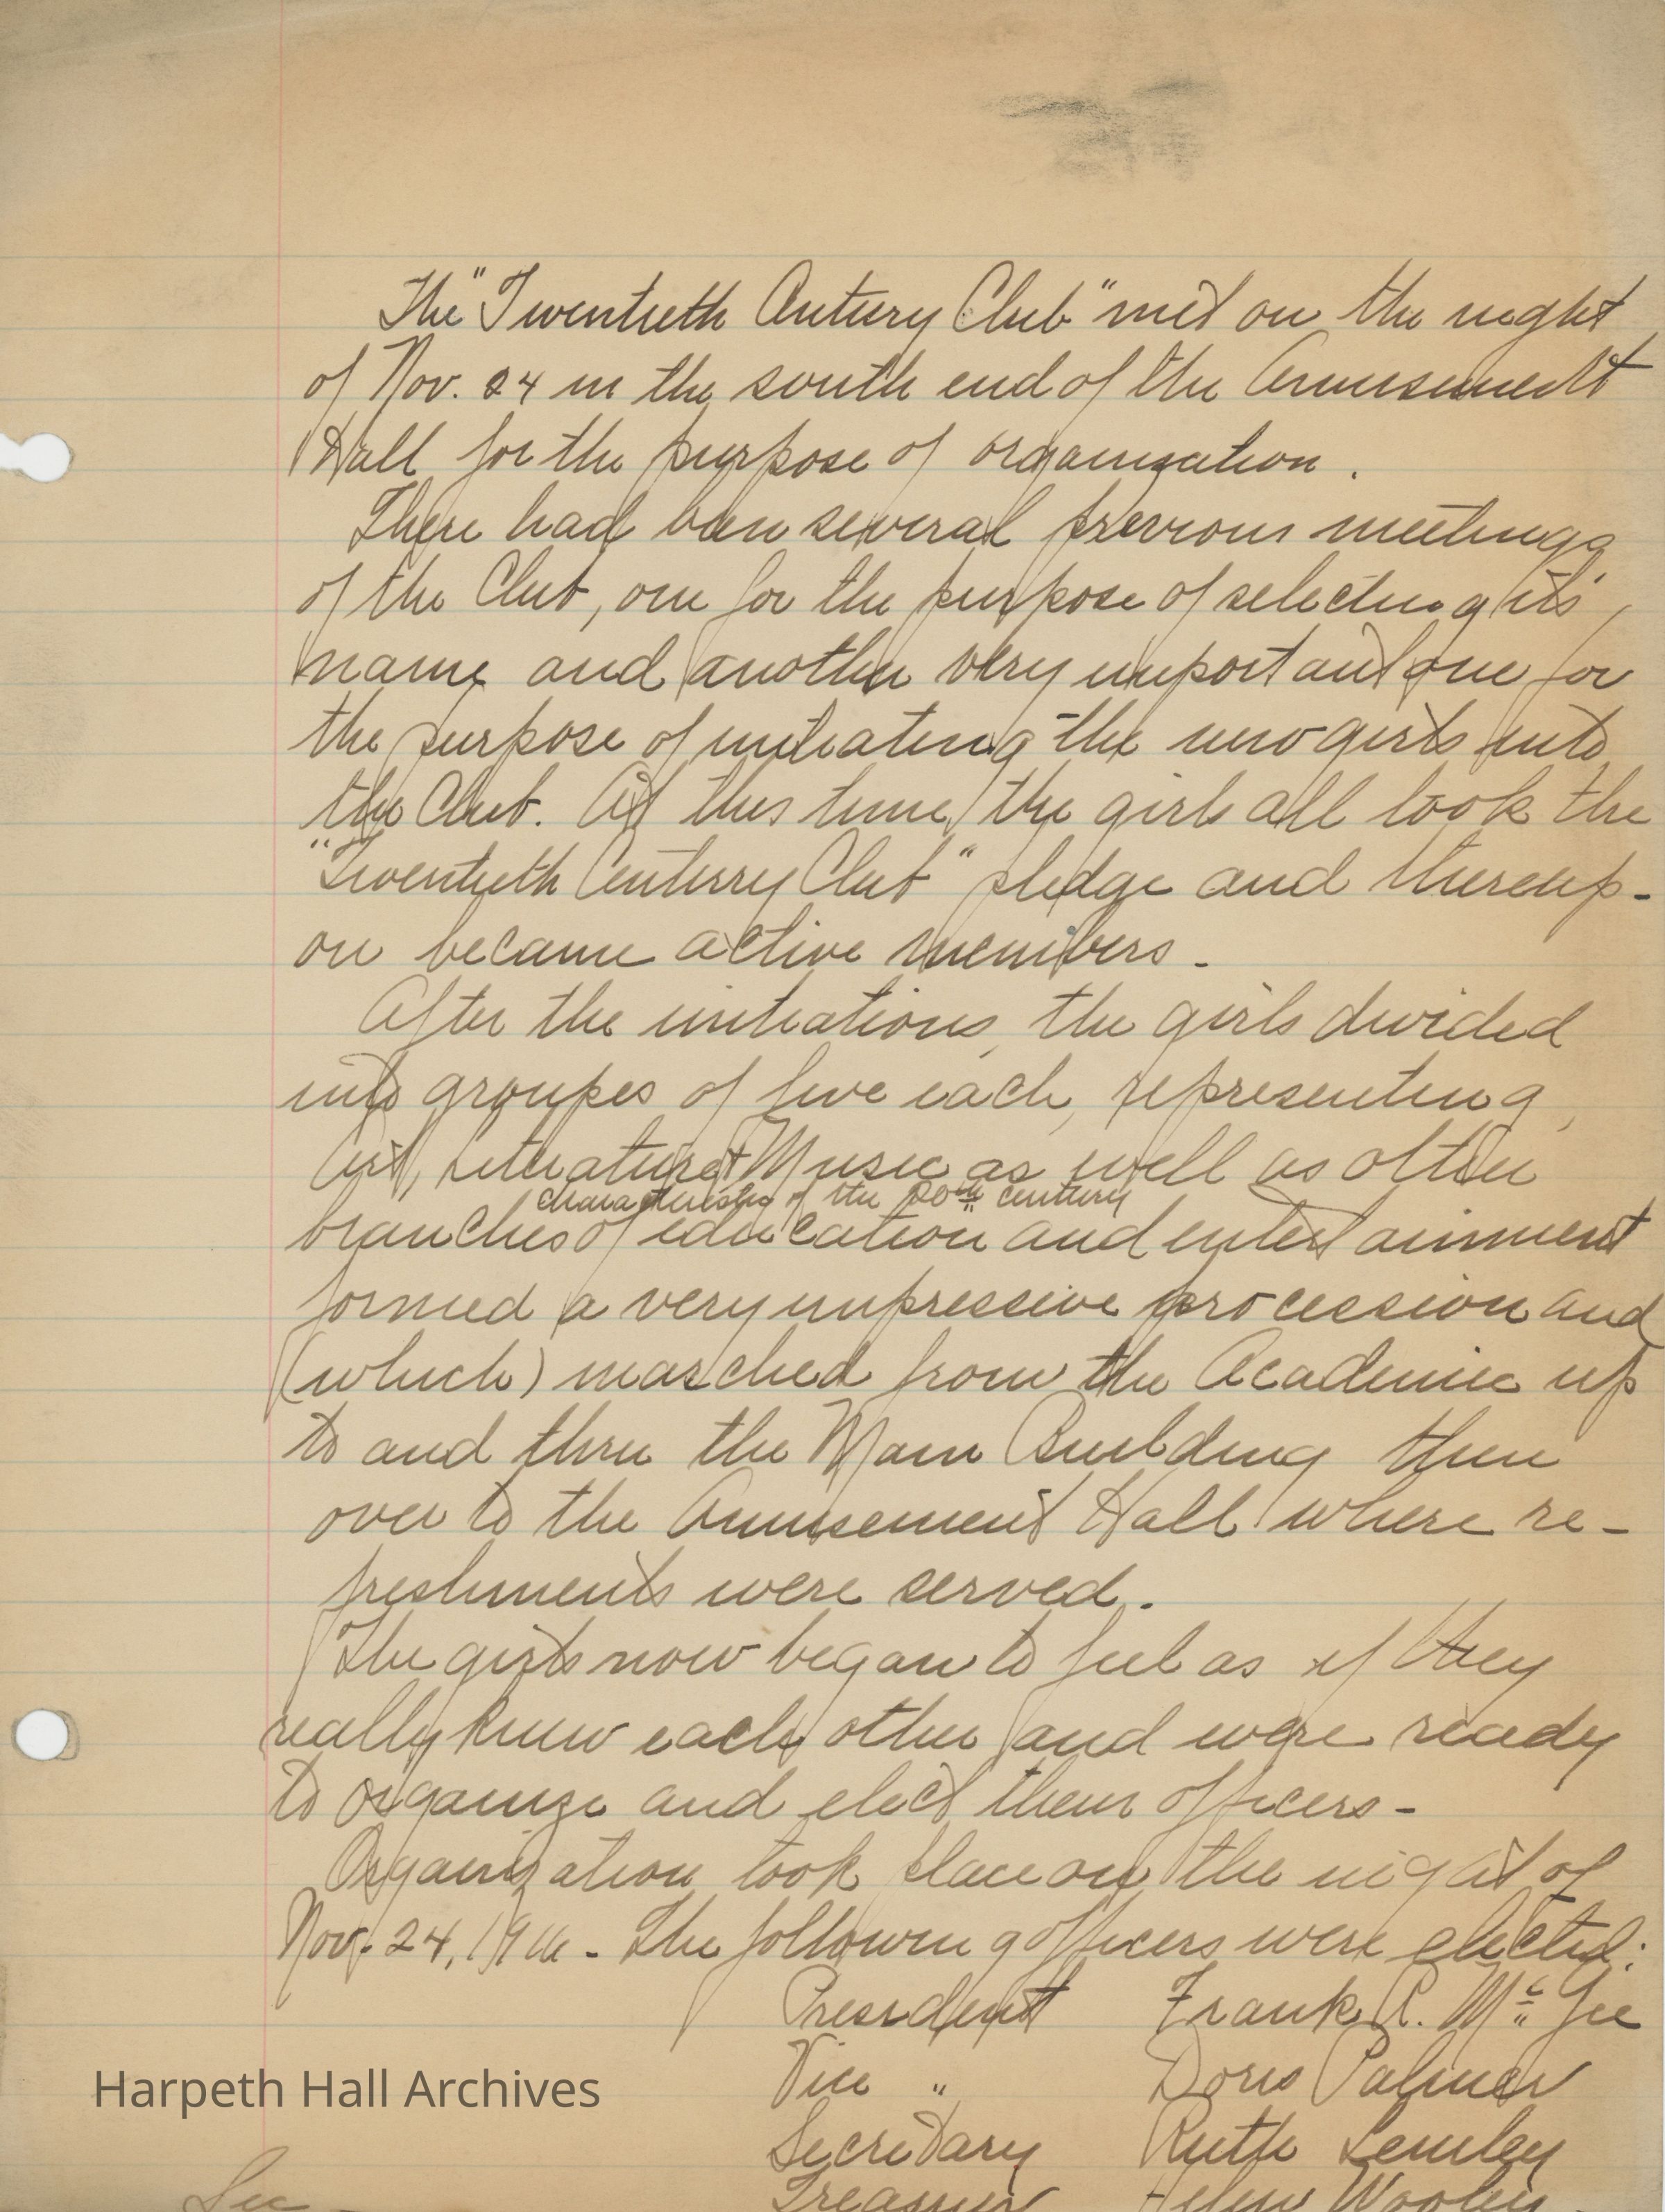 The "Twentieth Century Club" met on the night
of Nov. 24 in the south end of the Amusement
Hall for the purpose of organization.
There had been several previous meetings
of the Club, one for the purpose of selecting its'
name and another very important one for
the purpose of initiating the new girls into
the Club. At this time, the girls all took the
"Twentieth Century Club" pledge and thereup-
on became active members.
After the initiations, the girls divided
into groupes of five each, representing,
Art, Literature & Music as well as other
characteristic of the 20th century
branches of education and entertainment
formed a very impressive procession and
(which) marched from the Academic up
to and thru the Main Building then
over to the Amusement Hall where re-
freshments were served.
The girls now began to feel as if they
really knew each other and were ready
to organize and elect their officers-
Organization took place on the night of
Nov. 24, 19 - The following officers were elected:
President Frank R. McGee
Vice " Doris Palmer
Secretary Ruth Lemley
Treasurer Helen Wooley
Harpeth Hall Archives
Sec